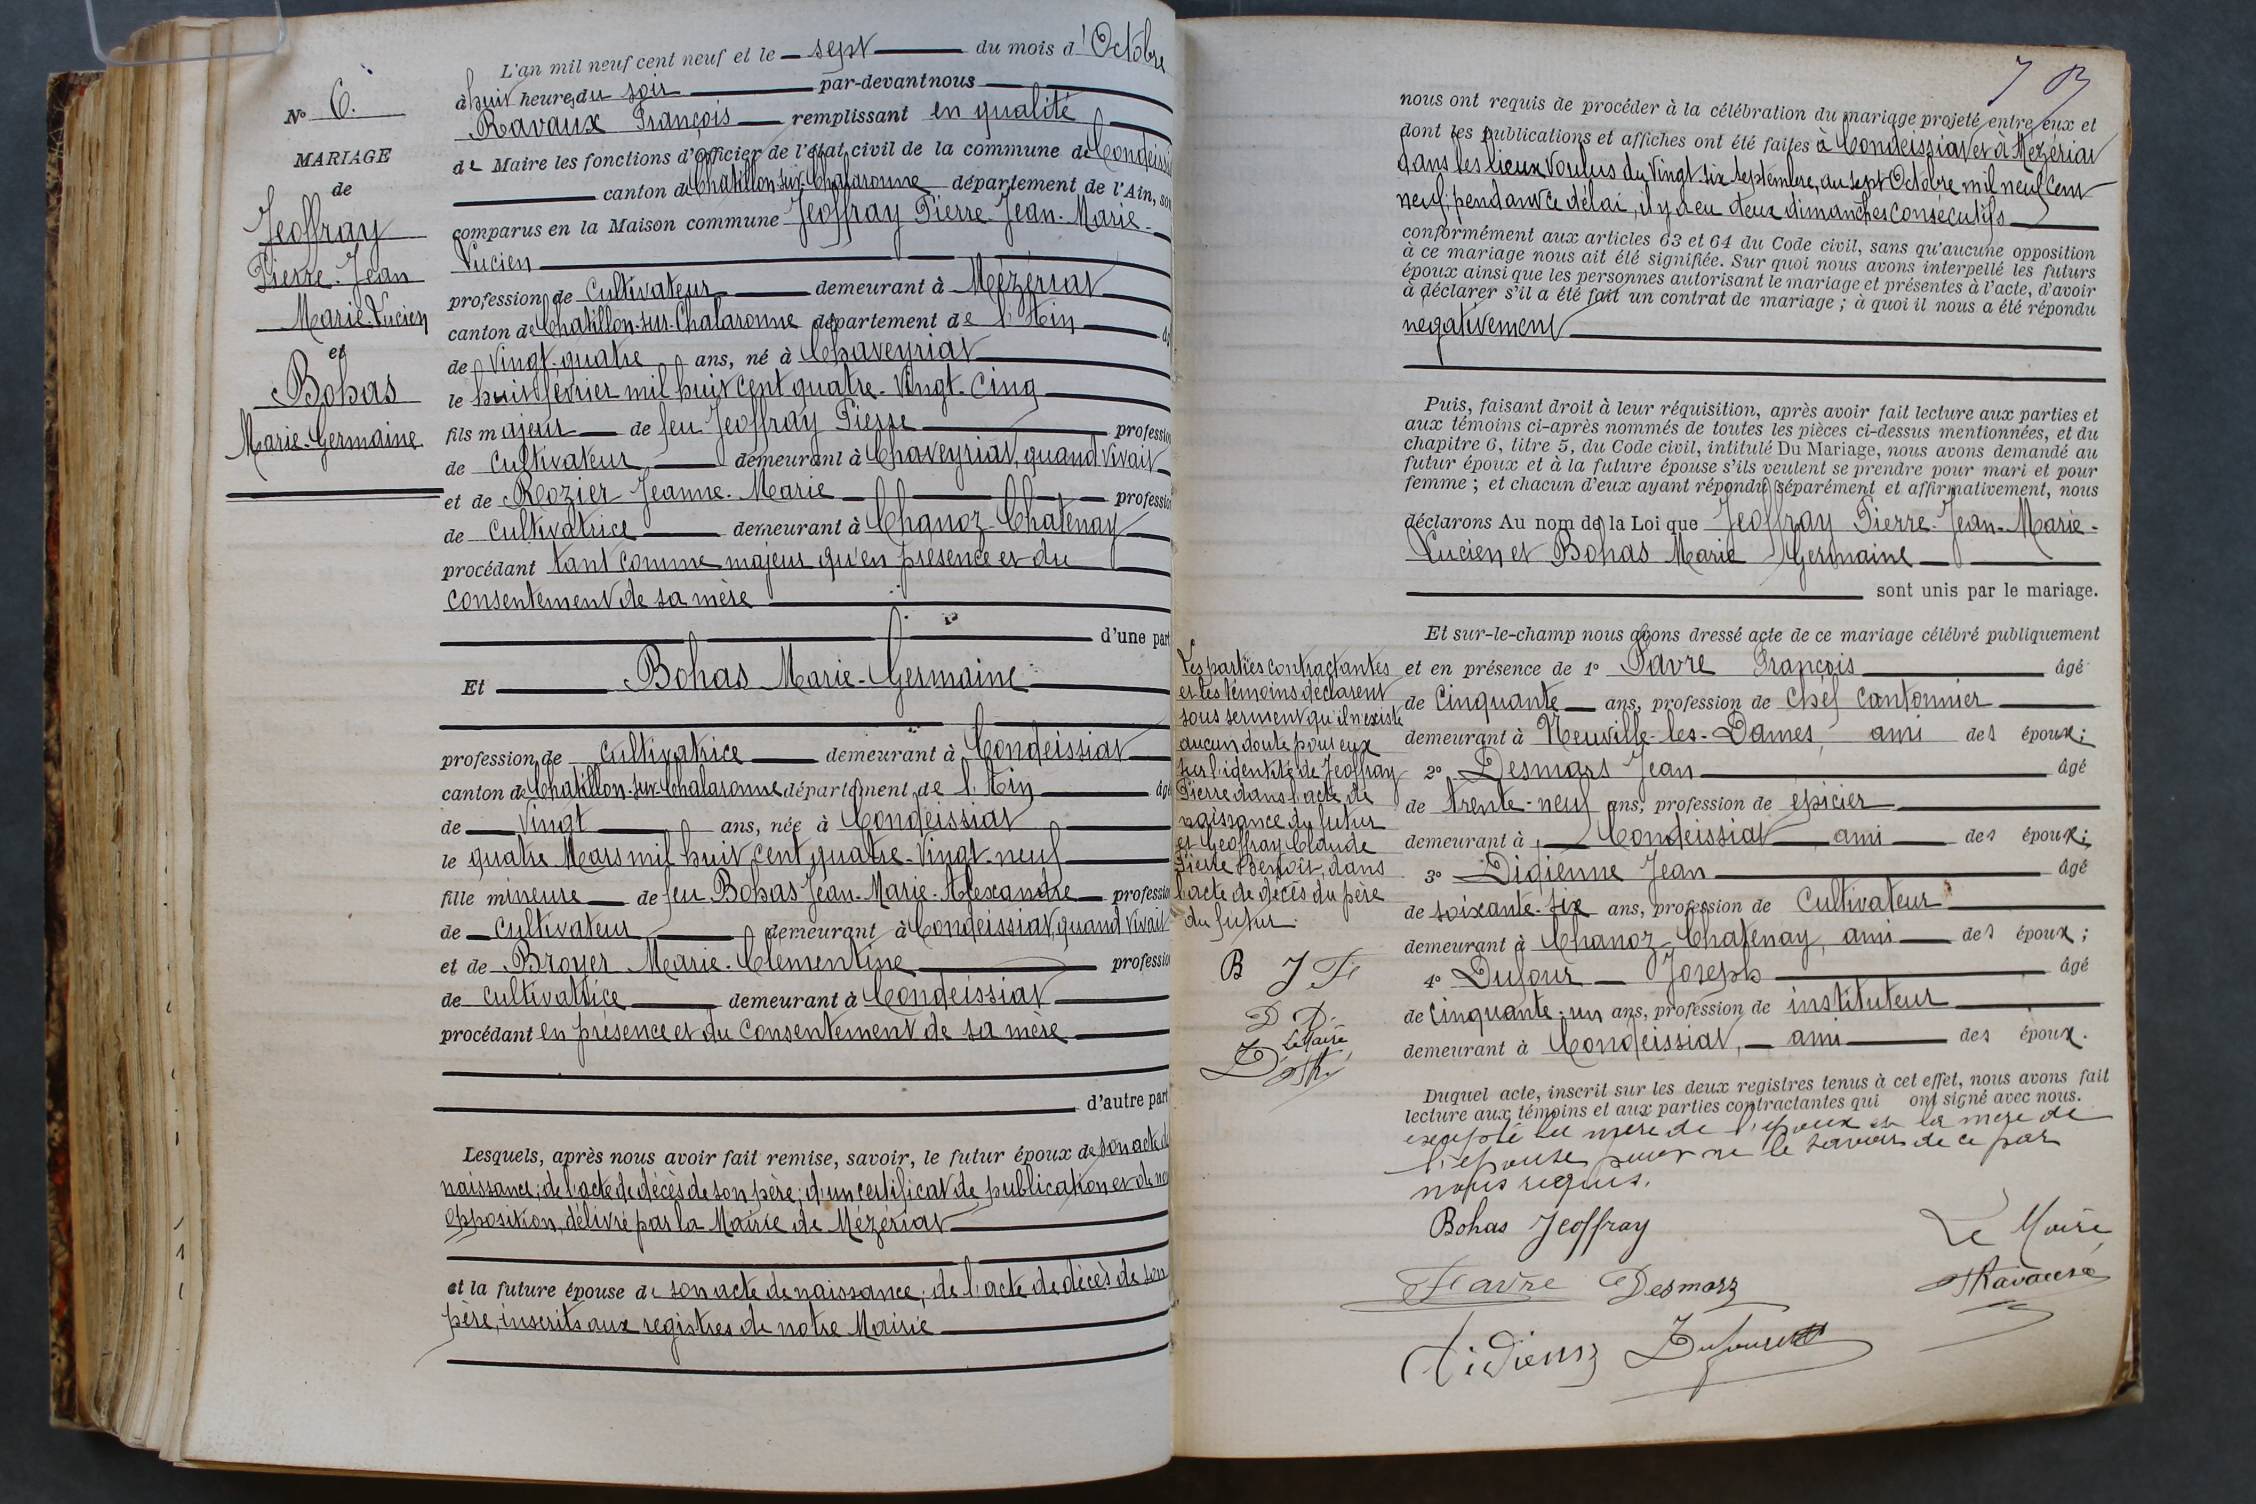 N° 6.
MARIAGE
de
Jeoffray
Pierre-Jean
Marie-Lucien
et
Bohas
Marie-Germaine
L'an mil neuf cent neuf et le sept du mois d'Octobre
à huit heures du soir par-devant nous
Ravaux François remplissant en qualité
de Maire les fonctions d'officier de l'état civil de la commune de Condeissiat
canton de Chatillon-sur-Chalaronne département de l'Ain, son
comparus en la Maison commune Jeoffray Pierre-Jean-Marie-
Lucien
profession de cultivateur demeurant à Mézériat
canton de Chatillon-sur-Chalaronne département de l'Ain âg
de vingt-quatre ans, né à Chaveyriat
le huit février mil huit cent quatre-vingt-cinq
fils majeur de feu Jeoffray Pierre profession
de cultivateur demeurant à Chaveyriat, quand vivait
et de Rozier Jeanne-Marie profession
de cultivatrice demeurant à Chanoz-Chatenay
procédant tant comme majeur qu'en présence et du
consentement de sa mère
d'une part
Et Bohas Marie-Germaine
profession de cultivatrice demeurant à Condeissiat
canton de Chatillon-sur-Chalaronne département de l'Ain âgé
de vingt ans, née à Condeissiat
le quatre Mars mil huit cent quatre-vingt-neuf
fille mineure de feu Bohas Jean-Marie-Alexandre profession
de cultivateur demeurant à Condeissiat, quand vivait
et de Broyer Marie-Clémentine profession
de cultivatrice demeurant à Condeissiat
procédant en présence et du consentement de sa mère
d'autre part
Lesquels, après nous avoir fait remise, savoir, le futur époux de son acte de
naissance; de l'acte de décès de son père; d'un certificat de publication et de no
opposition, délivré par la Mairie de Mézériat
et la future épouse de son acte de naissance; de l'acte de décès de son
père, inscrits aux registres de notre Mairie
nous ont requis de procéder à la célébration du mariage projeté entre eux et
dont les publications et affiches ont été faites à Condeissiat et à Mézériat
dans les lieux voulus du vingt-six septembre, au sept Octobre mil neuf cent
neuf; pendant ce délai, il y a eu deux dimanches consécutifs
conformément aux articles 63 et 64 du Code civil, sans qu'aucune opposition
à ce mariage nous ait été signifiée. Sur quoi nous avons interpellé les futurs
époux ainsi que les personnes autorisant le mariage et présentes à l'acte, d'avoir
à déclarer s'il a été fait un contrat de mariage ; à quoi il nous a été répondu
négativement
Puis, faisant droit à leur réquisition, après avoir fait lecture aux parties et
aux témoins ci-après nommés de toutes les pièces ci-dessus mentionnées, et du
chapitre 6, titre 5, du Code civil, intitulé Du Mariage, nous avons demandé au
futur époux et à la future épouse s'ils veulent se prendre pour mari et pour
femme ; et chacun d'eux ayant répondu séparément et affirmativement, nous
déclarons Au nom de la Loi que Jeoffray Pierre-Jean-Marie-
Lucien et Bohas Marie Germaine
sont unis par le mariage.
Et sur-le-champ nous avons dressé acte de ce mariage célébré publiquement
et en présence de 1° Favre François âgé
de cinquante ans, profession de chef cantonnier
demeurant à Neuville-les-Dames, ami des époux;
2° Desmars Jean âgé
de trente-neuf ans, profession de épicier
demeurant à Condeissiat ami des époux;
3° Didienne Jean âgé
de soixante-six ans, profession de cultivateur
demeurant à Chanoz-Chatenay, ami des époux;
4° Dufour Joseph âgé
de cinquante-un ans, profession de instituteur
demeurant à Condeissiat, ami des époux.
Duquel acte, inscrit sur les deux registres tenus à cet effet, nous avons fait
lecture aux témoins et aux parties contractantes qui ont signé avec nous.
excepté la mère de l'époux et la mère de
l'épouse pour ne le savoir de ce par
nous requis.
Les parties contractantes
et les témoins déclarent
sous serment qu'il n'existe
aucun doute pour eux
sur l'identité de Jeoffray
Pierre dans l'acte de
naissance du futur
et Geoffray Claude
Pierre Benoît, dans
l'acte de décès du père
du futur.
B J F
D D.
Le Maire,
Bohas Jeoffray
Le Maire,
Favre Desmars
Ravaux
Didienne Dufour